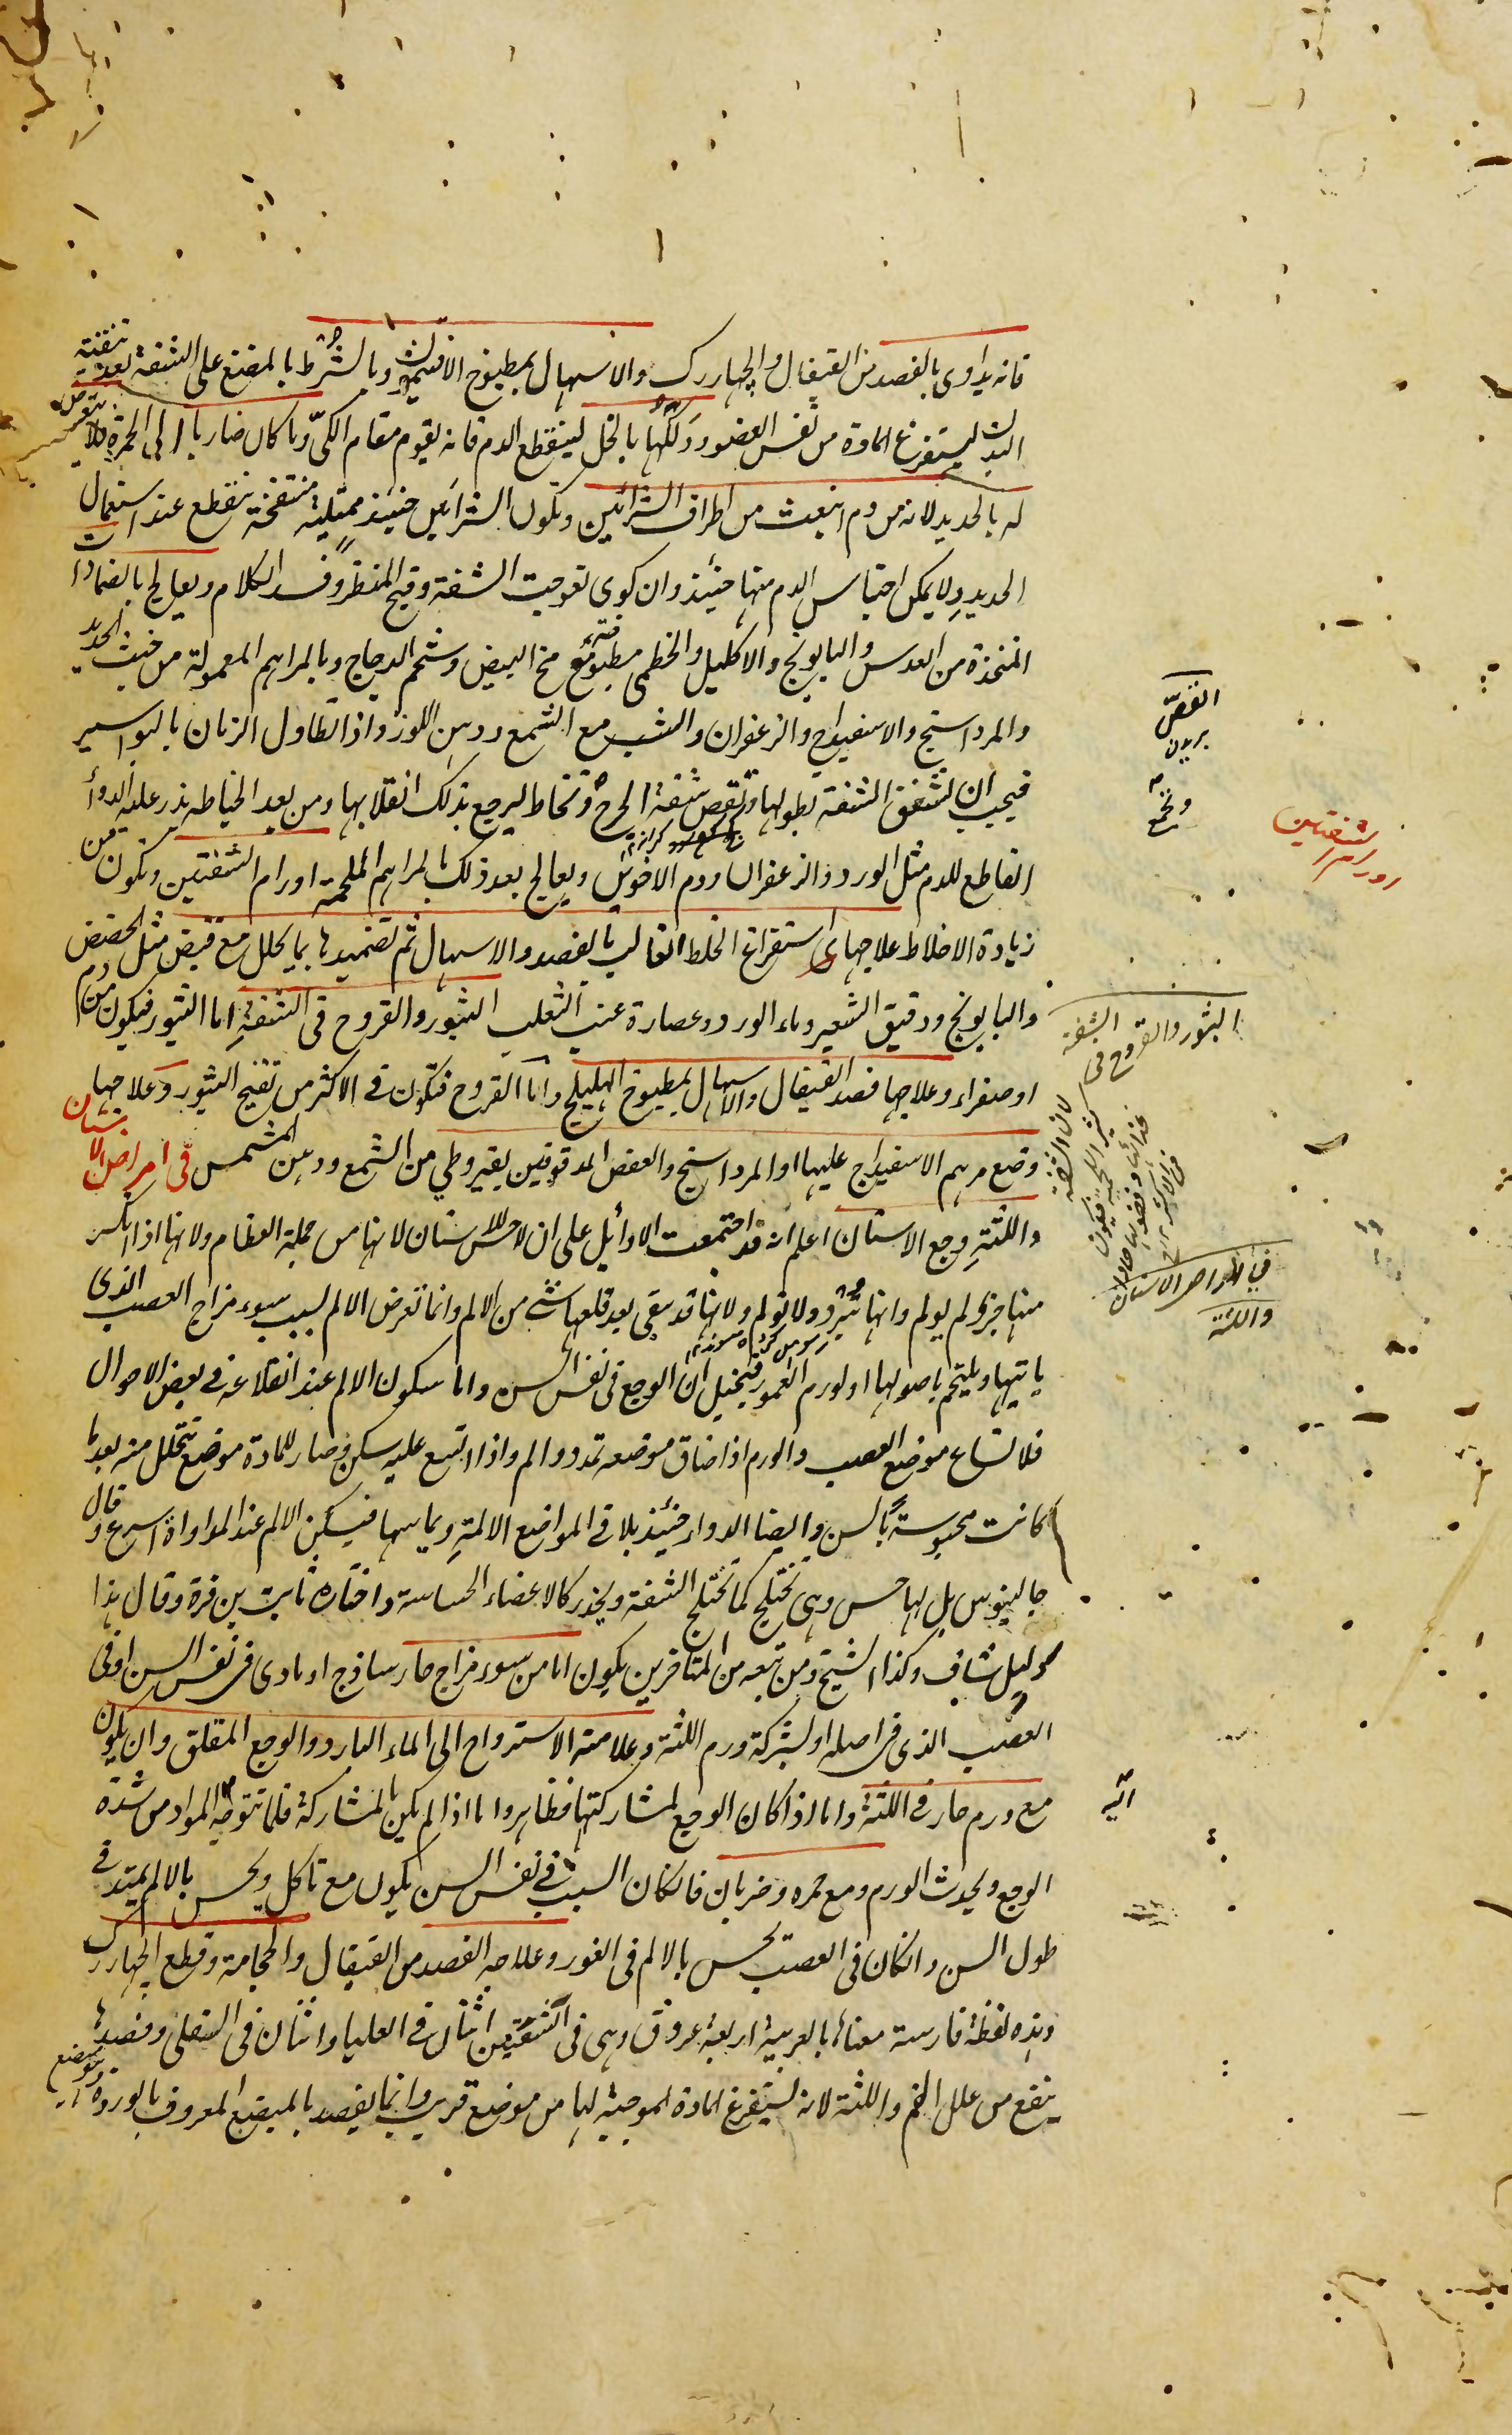 فانه يداوى بالفصد من القيفال والچهاررك والاسهال بمطبوخ الافتيمون وبالشرط بالمبضع على الشفة بعد تنقية
البدن ليستفرغ المادة من نفس العضو ودلكها بالخل لينقطع الدم فانه يقوم مقام الكىّ وما كان ضاربا الى الحمرة فلا يتعرض
له بالحديد لانه من دم انبعث من اطراف الشرائين وتكون الشرائين حينئذ ممتلية منتفخة تنقطع عند استعمال
الحديد ولا يمكن احتباس الدم منها حينئذ وان كوى تعوجت الشفة وقبح المنظر وفسد الكلام ويعالج بالضمادات
المتخذة من العدس والبابونج والاكليل والخطمى مطبوخة مع مخ البيض وشحم الدجاج وبالمراهم المعمولة من خبث الحديد
والمرداسنج والاسفيداج والزعفران والشب مع الشمع ودهن اللوز واذا تطاول الزمان بالبواسير
فيجب ان تشقق الشفة بطولها وتقص شفة الجرح وتخاط ليرجع بذلك انقلابها ومن بعد الخياطه يذر عليه الدوأ
القاطع للدم مثل الورد والزعفران ودم الاخوين ويعالج بعد ذلك بالمراهم الملحمة اورام الشفتين وتكون من
زيادة الاخلاط علاجها استفراغ الخلط الغالب بالفصد والاسهال ثم تضميدها بما يحلل مع قبض مثل الحضض
والبابونج ودقيق الشعير وماء الورد وعصارة عنب الثعلب البثور والقروح فى الشفة اما البثور فيكون من دم
او صفراء وعلاجها فصد القيفال والاسهال بمطبوخ الهليلج واما القروح فتكون فى الاكثر من تقيح البثور وعلاجها
وضع مرهم الاسفيداج عليها او المرداسنج والعفص المدقوقين بقيروطي من الشمع ودهن المشمس فى امراض الاسنان
واللثة وجع الاسنان اعلم انه قد اجتمعت الاوائل على ان لا حس للاسنان لانها من جملة العظام ولانها اذا انكسر
منها جزء لم يولم وانها تبرد ولا تولم ولانها قد يبقى بعد قلعها شئ من الالم وانما تعرض الالم بسبب سوء مزاج العصب الذى
ياتيها ويلتحم باصولها او لورم العمور فيتخيل ان الوجع فى نفس السن واما سكون الالم عند انقلاعه فى بعض الاحوال
فلاتساع موضع العصب والورم اذا ضاق موضعه تمدد والم واذا اتسع عليه سكن وصار للمادة موضع تتحلل منه بعد ما
كانت محبوسة بالسن وايضا الدواء حينئذ يلاقى المواضع الالمة ويماسها فيسكن الالم عند المداواة اسرع وقال
جالينوس بل لها حس وهى تختلج كما تختلج الشفة ويخدر كالاعضاء الحساسة واختاره ثابت بن قرة وقال هذا
دليل شاف وكذا الشيخ ومن تبعه من المتاخرين يكون اما من سوء مزاج حار ساذج او مادى فى نفس السن او فى
العصب الذى فى اصله او بشركة ورم اللثة وعلامته الاسترواح الى الماء البارد والوجع المقلق وان يكون
مع ورم حار فى اللثة واما اذا كان الوجع لمشاركتها فظاهر واما اذا لم يكن بالمشاركة فلما تتوجه المواد من شدة
الوجع ويحدث الورم ومع حمره وضربان فانكان السبب فى نفس السن يكون مع تاكل ويحس بالالم يمتد فى
طول السن وانكان فى العصب يحس بالالم فى الغور وعلاجه الفصد من القيفال والحجامة وقطع الچهاررك
وهذه لفظة فارسية معناها بالعربية اربعة عروق وهى فى الشفتين اثنان فى العليا واثنان فى السفلى وفصدها
ينفع من علل الفم واللثة لانه يستفرغ المادة الموجبة لها من موضع قريب وانما يفصد بالمبضع المعروف بالوردة
القص
بريدن
اورام الشفتين
البثور والقروح فى الشفة
لان الشفة
كثير اللحمية فيكون
غذائها وفضولها
فى الاكثر
فى امراض الاسنان
واللثة